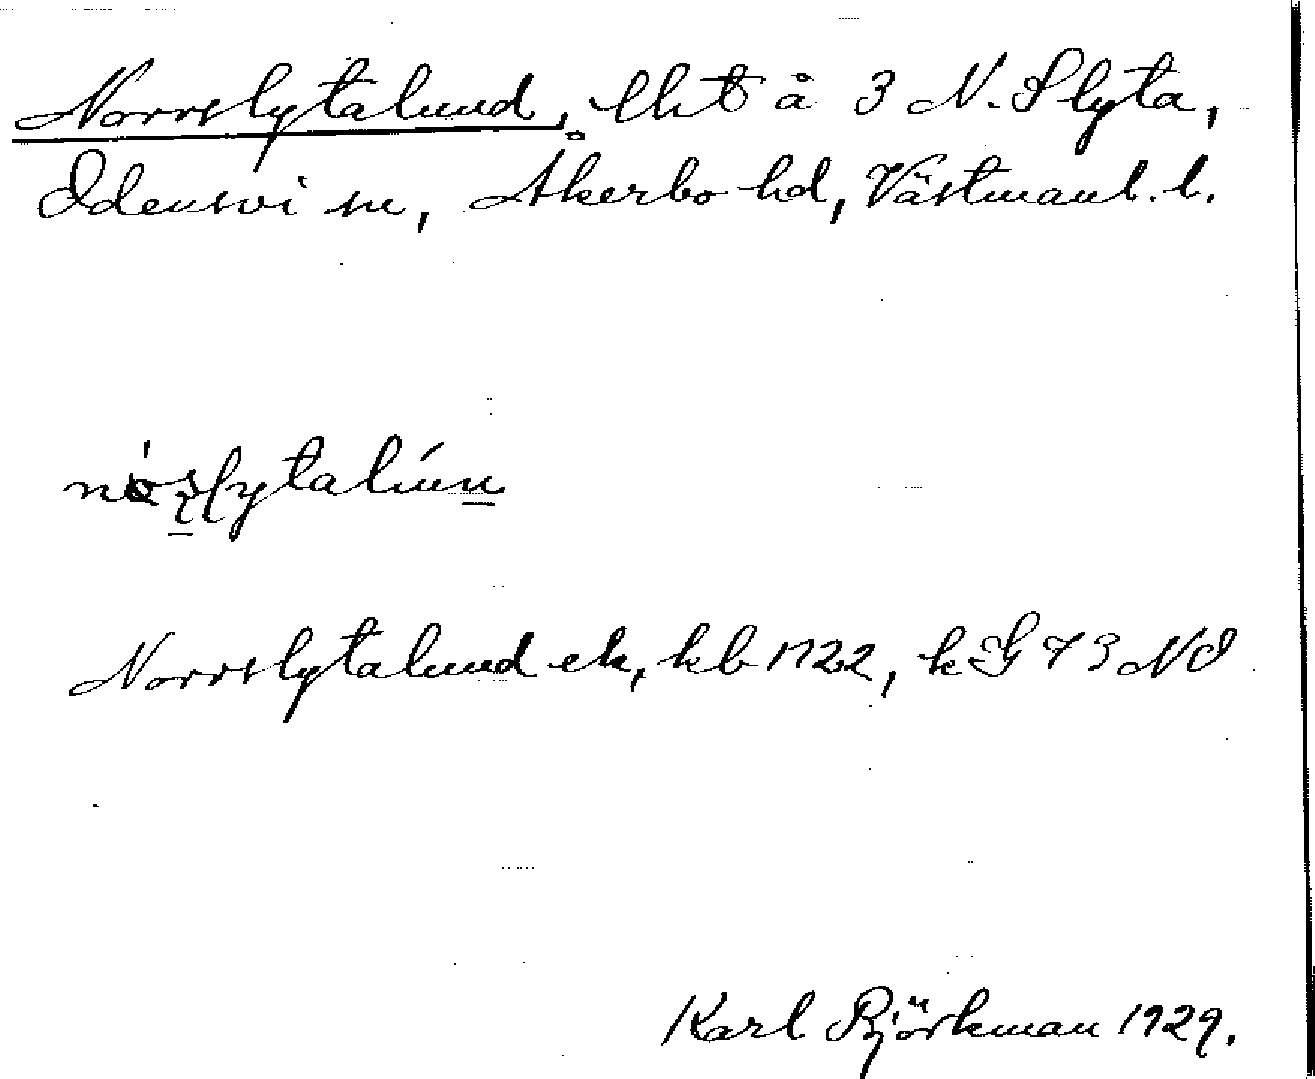 Norrslytalund, lht å 3 N. Slyta,
Odensvi sn, Åkerbo hd, Västmanl. l.
Norrslytalund ek, kb 1722, k G 73 NO
Karl Björkman 1929.